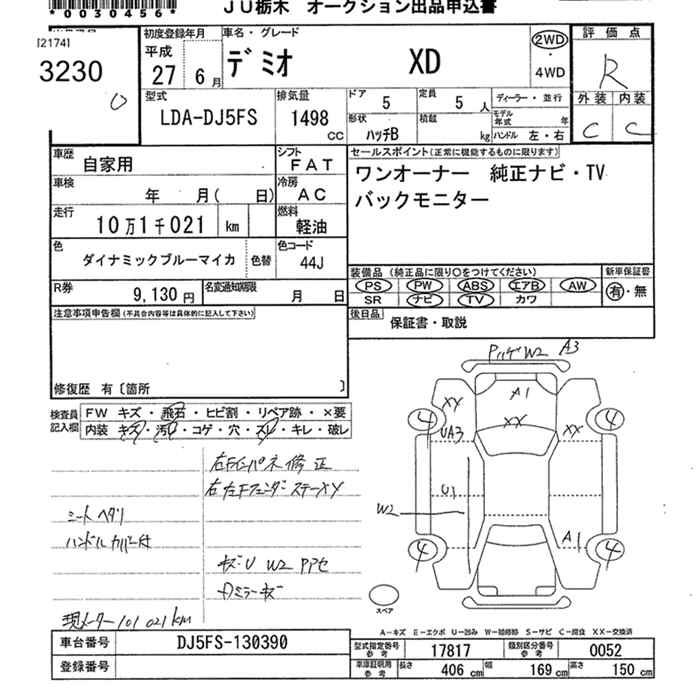 *0030456*
JU栃木 オークション出品申込書
[2174]
3230
初度登録年月
平成
27 6月
車名・グレード
デミオ XD
2WD
・
4WD
評価点
R
外装 内装
C C
型式
LDA-DJ5FS
排気量
1498
CC
ドア
5
定員
5人
形状
ハッチB
積載
kg
ディーラー・並行
モデル年式 年
ハンドル 左・右
車歴
自家用
シフト
FAT
車検
年 月( 日)
冷房
AC
走行
10万1千021 km
燃料
軽油
色
ダイナミックブルーマイカ
色替
色コード
44J
R券
9,130円
名変通知期限
月 日
セールスポイント(正常に機能するものに限ります)
ワンオーナー 純正ナビ・TV
バックモニター
装備品 (純正品に限り〇をつけてください)
PS PW ABS エアB AW
SR ナビ TV カワ
新車保証書
有・無
後日品
保証書・取説
注意事項申告欄(不具合内容等は具体的に記入して下さい)
修復歴 有〔箇所 〕
検査員
記入欄
FW キズ・飛石・ヒビ割・リペア跡・×要
内装 キズ・汚レ・コゲ・穴・スレ・キレ・破レ
右Fインパネ修正
右左Fフェンダーステー XY
シートヘタリ
ハンドルカバー付
キズU W2 PPセ
Dミラーキズ
現メーター101021km
W2 A3
A1
XX XX XX
UA3
U1
W2
A1
4 4
4 4
スペア
A-キズ E-エクボ U-凹み W-補修跡 S-サビ C-腐食 XX-交換済
車台番号
DJ5FS-130390
登録番号
型式指定番号
参考
17817
類別区分番号
参考
0052
車庫証明用
参考
長さ 406 cm 幅 169 cm 高さ 150 cm